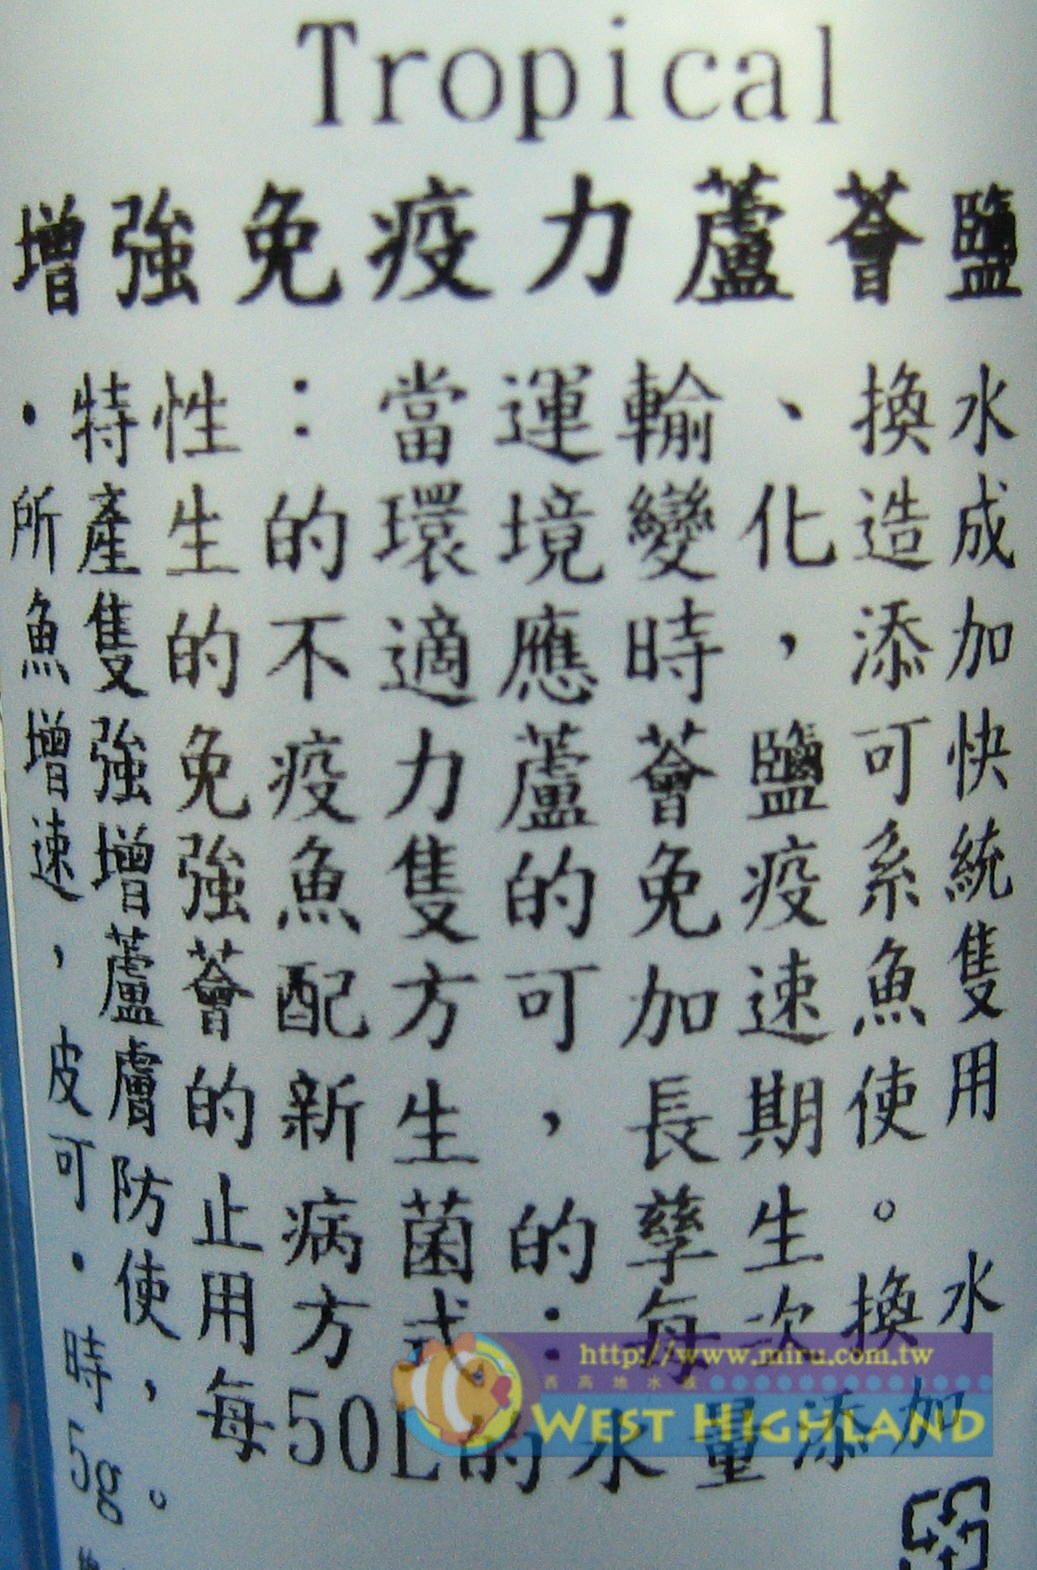 Tropical
增強免疫力蘆薈鹽
・特性：當運輸、換水
所產生的環境變化造成
魚隻的不適應時，添加
增強免疫力蘆薈鹽可快
速增強魚隻的免疫系統
，蘆薈配方可加速魚隻
皮膚的新生，長期使用
可防止病菌的孽生。
・使用方式：每次換水
時，每50L的水量添加
5g。
http://www.miru.com.tw
西高地水族
WEST HIGHLAND